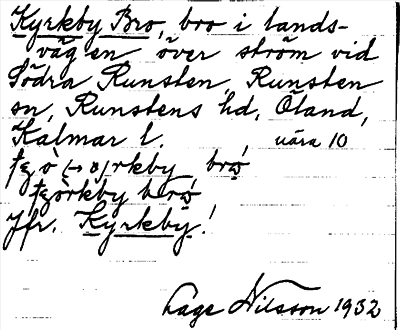 Kyrkby Bro, bro i lands-
vägen över ström vid
Södra Runsten, Runsten
sn, Runstens hd, Öland,
Kalmar l. nära 10
rkby brå
by brå
Jfr. Kyrkby!
Låge Nilsson 1932